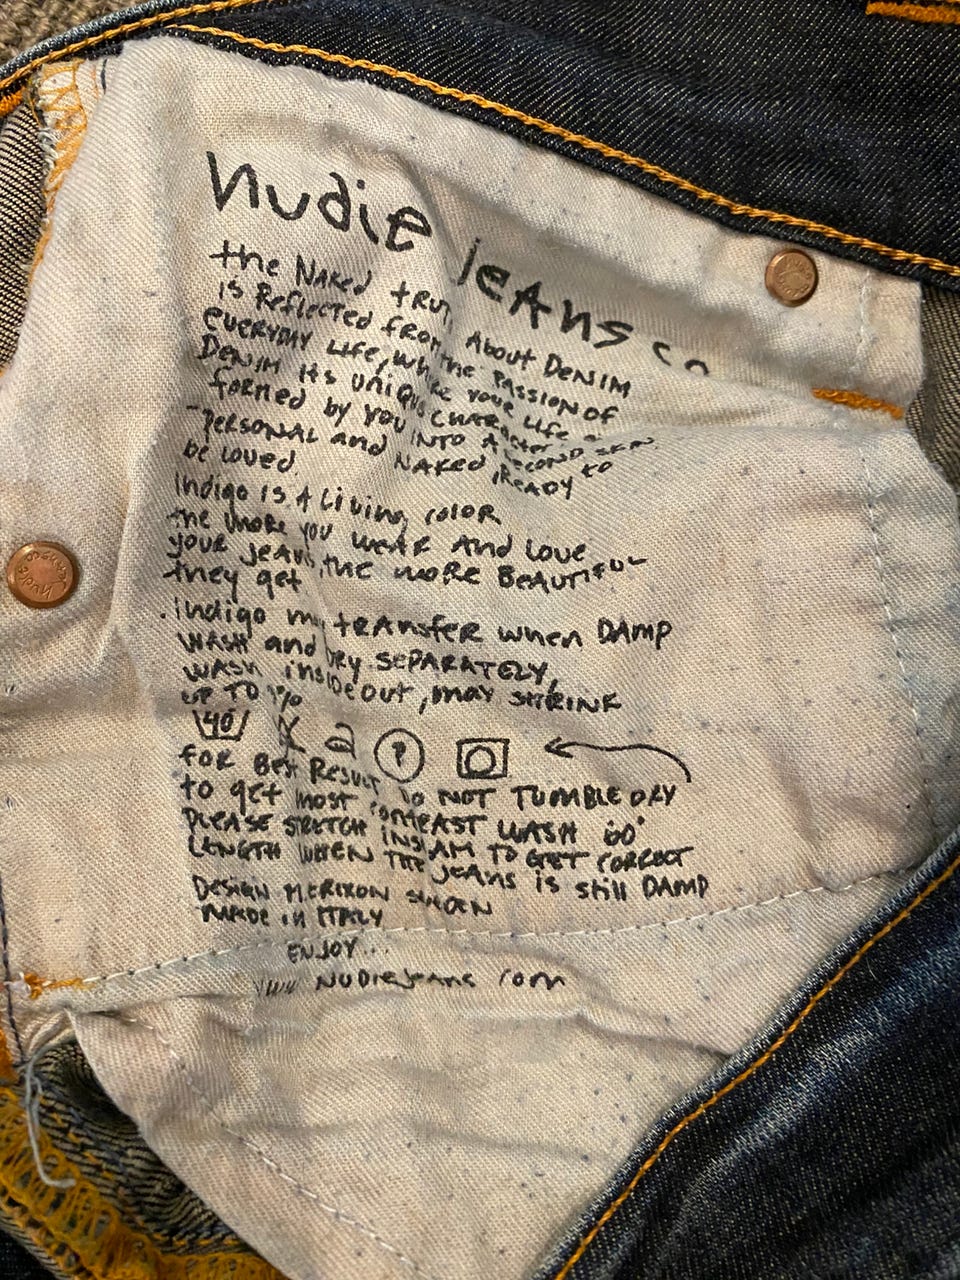 nudie jeans co
the NAKED TRUT About DENIM
is Reflected from the PASSION OF
EVERYDAY LIFE, WHERE YOUR LIFE
DENIM ITS UNIQUE CHARACTER
formed by YOU INTO A SECOND SKIN
- PERSONAL and NAKED READY to
be loved
indigo is A Living color
the more you WEAR AND LOVE
your jeans, the MORE BEAUTIFUL
they get
.indigo may tRANSfER when DAMP
WASH and DRY SEPARATELY,
WASH inside out, may SHRINK
UP TO %
40 P
FOR BEST RESULT DO NOT TUMBLE DRY
to get most CONTRAST WASH 60°
PLEASE STRETCH INSEAM TO GET CORRECT
LENGTH WHEN THE JEANS is still DAMP
DESIGN M.ERIXON
MADE IN ITALY
ENJOY...
www NUDIEJEANS com
nudie